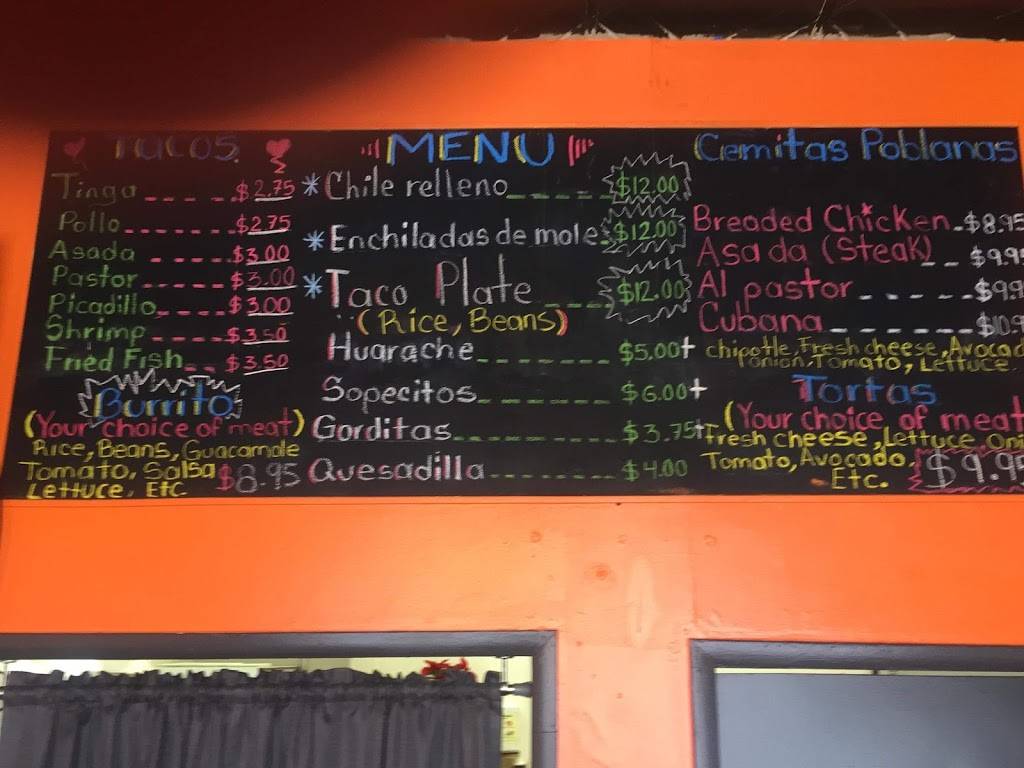 TACOS
Tinga $2.75
Pollo $2.75
Asada $3.00
Pastor $3.00
Picadillo $3.00
Shrimp $3.50
Fried Fish $3.50
Burrito
(Your choice of meat)
Rice, Beans, Guacamole
Tomato, Salsa $8.95
Lettuce, Etc
MENU
*Chile relleno $12.00
*Enchiladas de mole $12.00
*Taco Plate $12.00
(Rice, Beans)
Huarache $5.00+
Sopecitos $6.00+
Gorditas $3.75+
Quesadilla $4.00
Cemitas Poblanas
Breaded Chicken $8.95
Asada (Steak) $9.9
Al pastor $9.9
Cubana $10.9
chipotle, Fresh cheese, Avocad
onion, Tomato, Lettuce
Tortas
(Your choice of meat
Fresh cheese, Lettuce, Oni
Tomato, Avocado,
Etc. $9.95